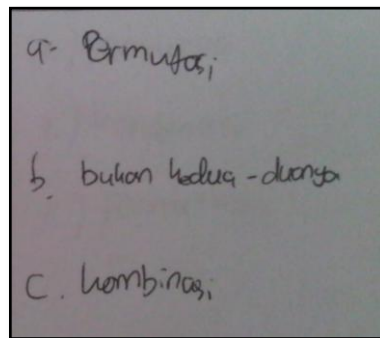 a. Permutasi
b. bukan kedua-duanya
c. kombinasi